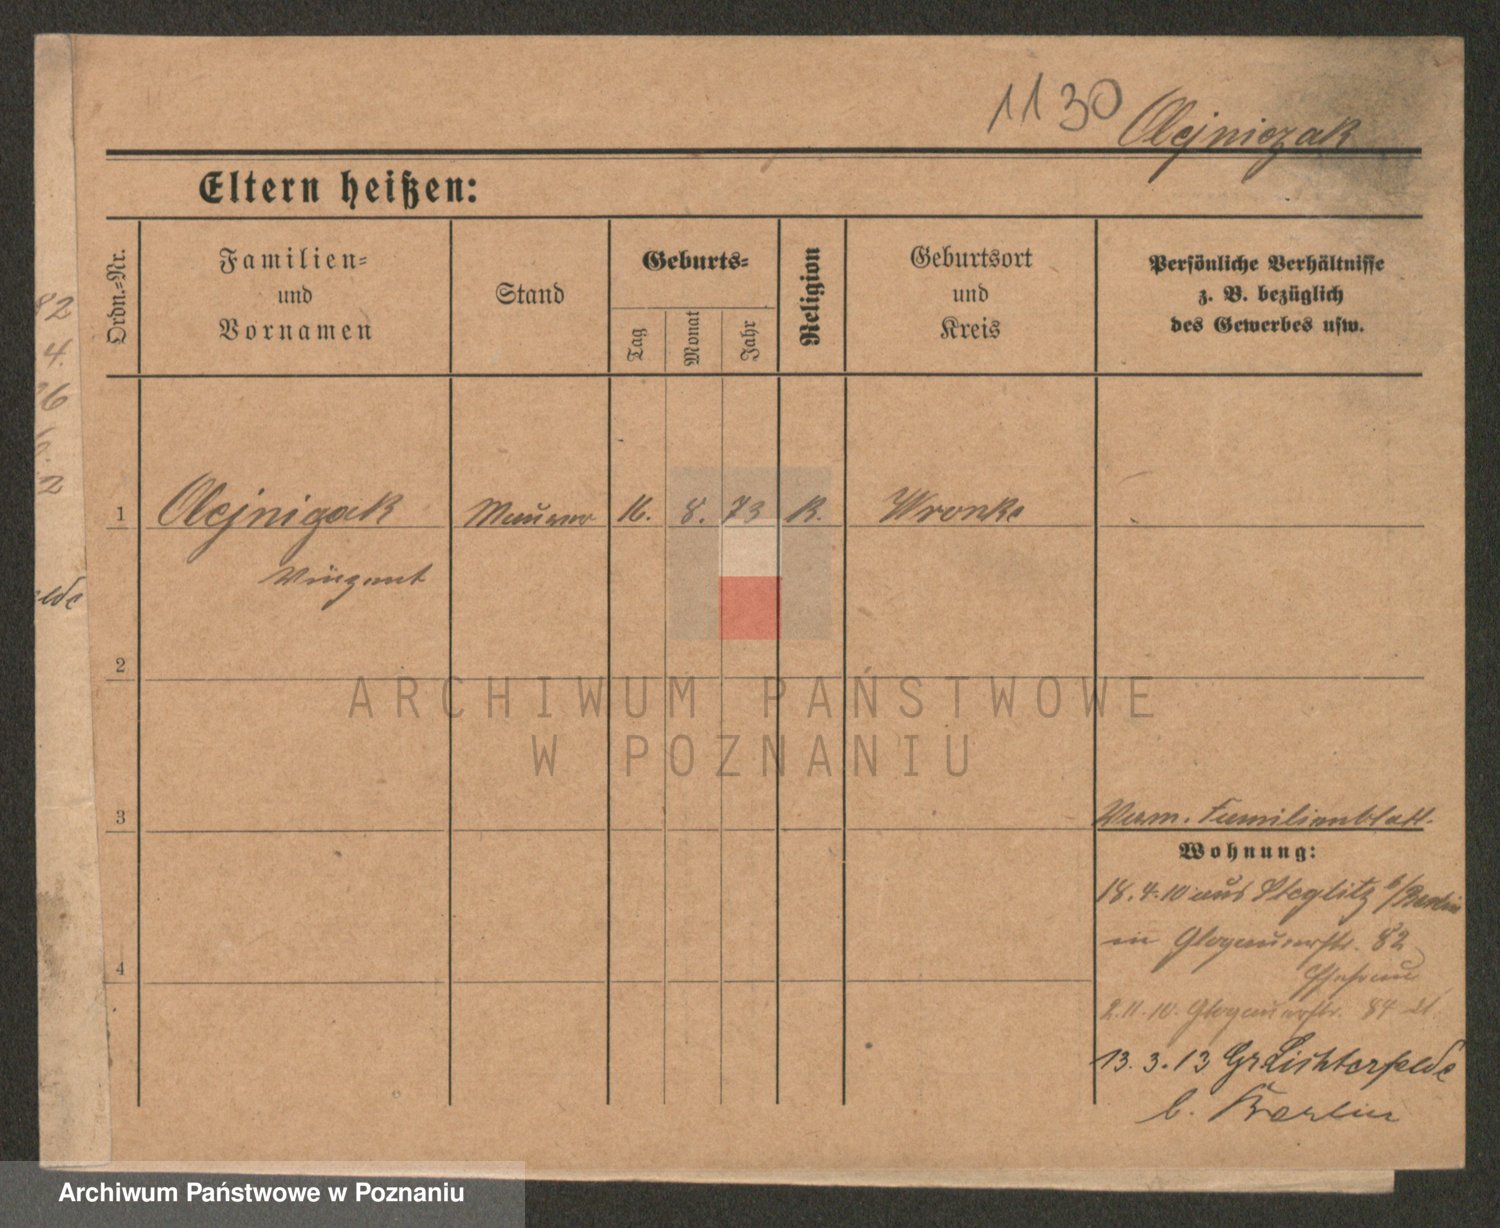 1130 Olejniczak
Eltern heißen:
Ordn.-Nr.
Familien-
und
Vornamen
Stand
Geburts-
Tag
Monat
Jahr
Religion
Geburtsort
und
Kreis
Persönliche Verhältnisse
z. B. bezüglich
des Gewerbes usw.
82
4.
2
1 Olejnizak Maurer 16. 8. 73 R. Wronke
Vinzent
elde
2
ARCHIWUM PAŃSTWOWE
W POZNANIU
3
Verm. Familienblatt.
Wohnung:
18.4.10 aus Steglitz b/Berlin
in Glogauerstr. 82
4
Ehefrau
2.11.10. Glogauerstr. 84
13.3.13 Gr Lichterfelde
b. Berlin
Archiwum Państwowe w Poznaniu